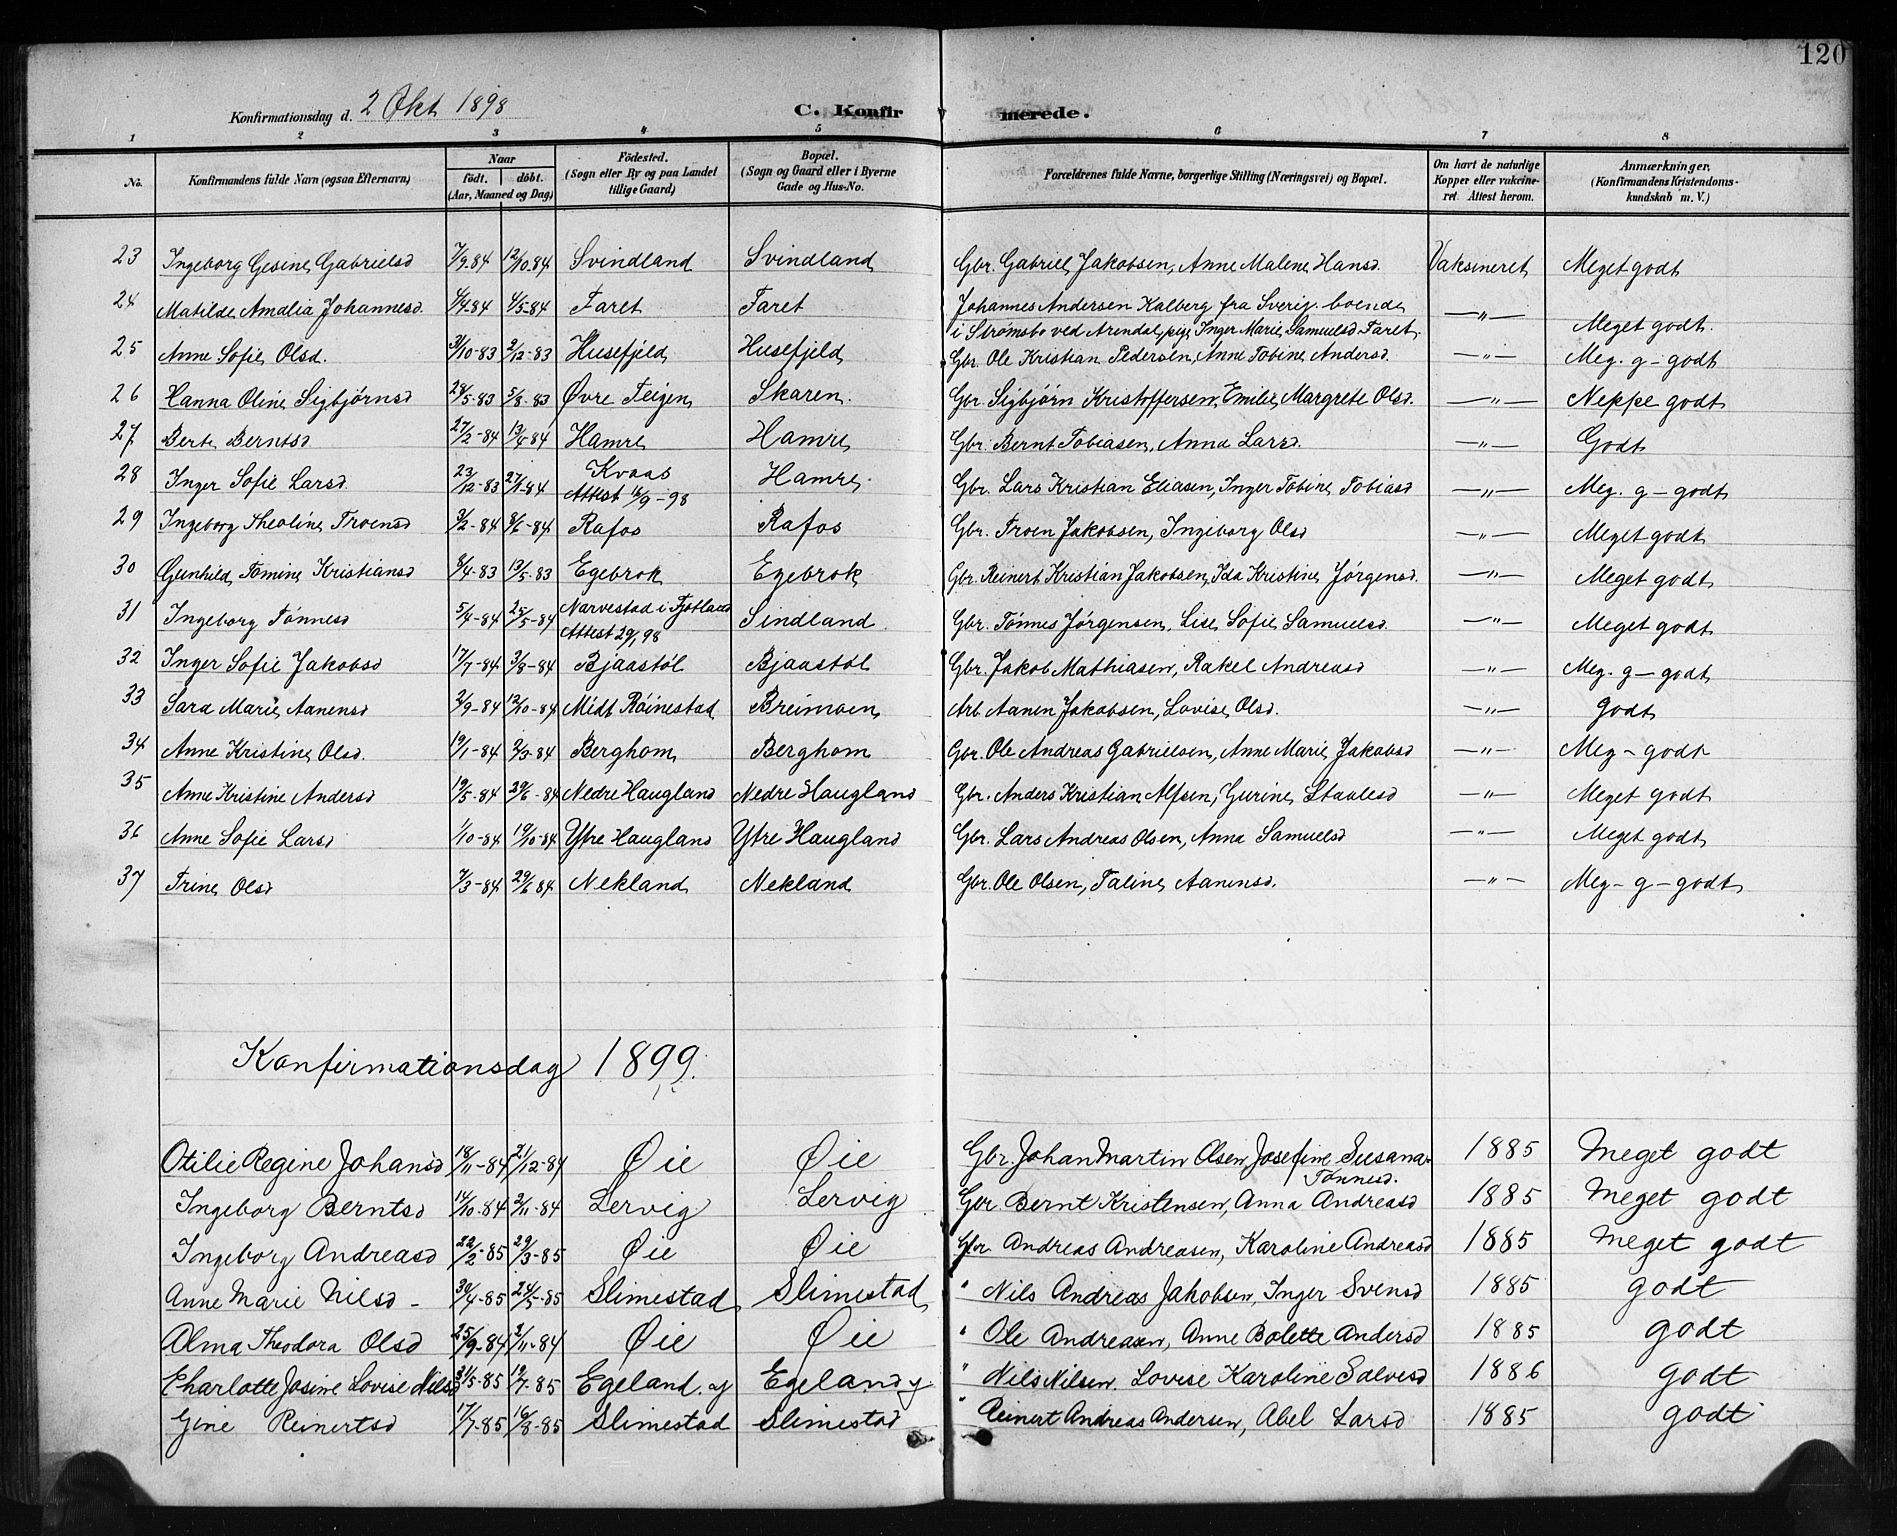 120
Konfirmationsdag d. 2 Okt 1898 C. Konfirmerede.
1 2 3 4 5 6 7 8
No. Konfirmandens fulde Navn (ogsaa Efternavn) Naar födt. döbt. (Aar, Maaned og Dag) Födested. (Sogn eller By og paa Landet tillige Gaard) Bopæl. (Sogn og Gaard eller i Byerne Gade og Hus-No. Forældrenes fulde Navne, borgerlige Stilling (Næringsvei) og Bopæl. Om havt de naturlige Kopper eller vakcineret. Attest herom. Anmærkninger. (Konfirmandens Kristendomskundskab m. V.)
23 Ingeborg Gesine Gabrielsd 7/9-84 12/10-84 Svindland Svindland Gbr. Gabriel Jakobsen, Anne Malene Hansd. Vaksineret Meget godt
24 Matilde Amalia Johannesd. 4/4-84 4/5-84 Faret Faret Johannes Andersen Kalberg fra Sverig boende
i Strømsbo ved Arendal, pige Inger Marie Samuelsd Faret —"— Meget godt.
25 Anne Sofie Olsd. 31/10-83 2/12-83 Husefjeld Husefjeld Gbr. Ole Kristian Pedersen, Anne Tobine Andersd —"— Meg. g- godt
26 Hanna Oline Sigbjørnsd 28/5-83 5/8-83 Øvre Feigen Skaren. Gbr. Sigbjörn Kristoffersen, Emilie Margrete Olsd. —"— Neppe godt
27 Berte Berntsd 27/2-84 13/4-84 Hamre Hamre Gbr. Bernt Tobiasen, Anna Larsd. —"— Godt
28 Inger Sofie Larsd 23/12-83 27/1-84 Kvaas Hamre Gbr. Lars Kristian Eliasen, Inger Tobine Tobiasd —"— Meg. g- godt
Attest 16/9-98
29 Ingeborg Theoline Troensd 3/2-84 8/6-84 Rafos Rafos Gbr. Troen Jakobsen, Ingeborg Olsd —"— Meget godt
30 Gunhild Tomine Kristiansd 8/4-83 13/5-83 Egebrok Egebrok Gbr. Reinert Kristian Jakobsen, Ida Kristine Jørgensd. —"— Meget godt
31 Ingeborg Tønnesd 5/4-84 25/5-84 Narvestad i Fjotland Sindland Gbr. Tønnes Jörgensen, Lise Sofie Samuelsd. —"— Meget godt
Attest 29/ 98
32 Inger Sofie Jakobsd 17/7-84 3/8-84 Bjaastöl Bjaastöl Gbr. Jakob Mathiasen, Rakel Andreasd —"— Meg. g- godt
33 Sara Marie Aanensd 2/9-84 12/10-84 Midt Röinestad Breimoen Arb. Aanen Jakobsen, Lovise Olsd. —"— Godt
34 Anne Kristine Olsd. 19/1-84 2/3-84 Berghom Berghom Gbr. Ole Andreas Gabrielsen, Anne Marie Jakobsd —"— Meg- godt
35 Anne Kristine Andersd 19/5-84 29/6-84 Nedre Haugland Nedre Haugland Gbr. Anders Kristian Alfsen, Gurine Staalesd —"— Meget godt
36 Anne Sofie Larsd 1/10-84 19/10-84 Ytre Haugland Ytre Haugland Gbr. Lars Andreas Olsen, Anna Samuelsd —"— Meget godt
37 Trine Olsd 7/3-84 29/6 84 Nekland Nekland Gbr. Ole Olsen, Taline Aanensd. —"— Meg- g- godt
Konfirmationsdag 1899.
Otilie Regine Johansd 18/11-84 21/12-84 Øie Øie Gbr. Johan Martin Olsen, Josefine Susana Tønnesd. 1885 Meget godt
Ingeborg Berntsd 14/10-84 2/11-84 Lervig Lervig Gbr Bernt Kristensen, Anna Andreasd 1885 Meget godt
Ingeborg Andreasd 22/2-85 29/3-85 Øie Øie Gbr. Andreas Andreasen, Karoline Andreasd 1885 Meget godt
Anne Marie Nilsd - 30/4-85 24/5-85 Slimestad Slimestad " Nils Andreas Jakobsen, Inger Svensd 1885 godt
Alma Theodora Olsd 25/9-84 2/11-84 Øie Øie " Ole Andreasen, Anne Bolette Andersd 1885 godt
Charlotte Josine Lovise Nilsd 31/5-85 19/7-85 Egeland. y Egeland y. " Nils Nilsen. Lovise Karoline Salvesd 1886 godt
Gine Reinertsd 17/7-85 16/8-85 Slimestad Slimestad " Reinert Andreas Andersen, Abel Larsd 1885 godt